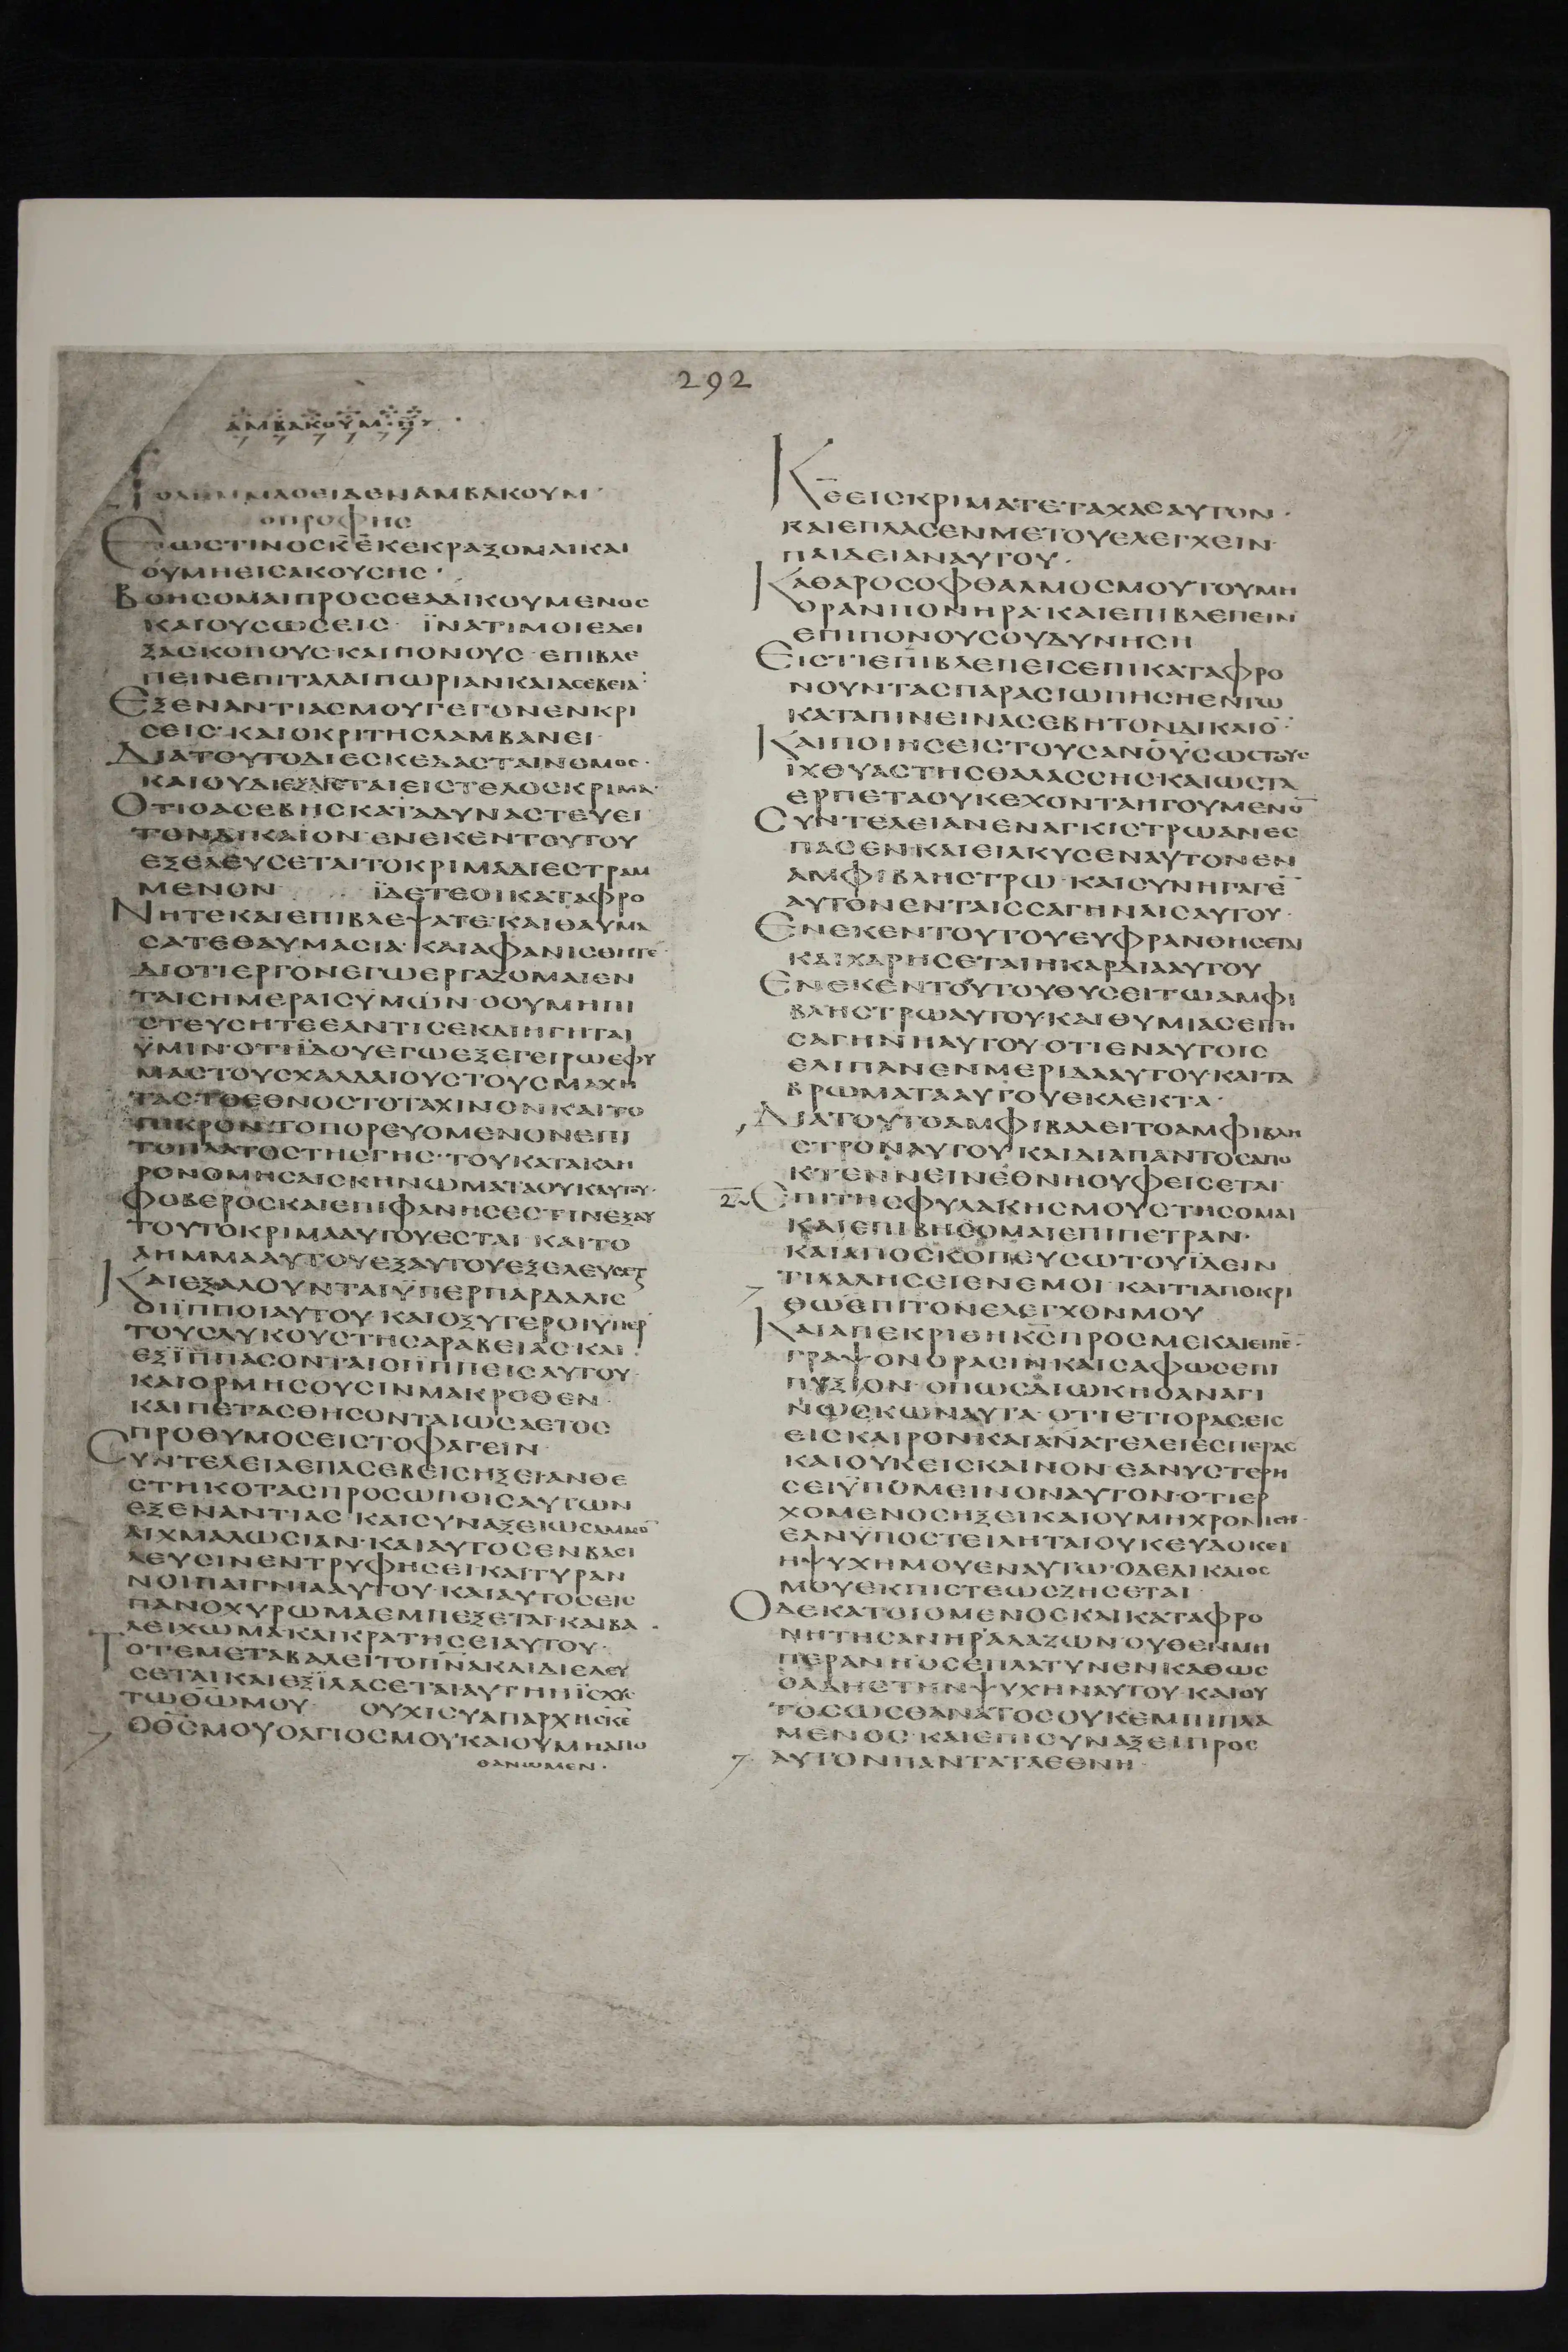 292
ΑΜΒΑΚΟΥΜ·Η
ΤΟΛΗΜΜΑΟΕΙΔΕΝΑΜΒΑΚΟΥΜ·
ΟΠΡΟΦΗϹ
ΕΩϹΤΙΝΟϹΚ̅Ε̅ΚΕΚΡΑΞΟΜΑΙΚΑΙ
ΟΥΜΗΕΙϹΑΚΟΥϹΗϹ·
ΒΟΗϹΟΜΑΙΠΡΟϹϹΕΑΔΙΚΟΥΜΕΝΟϹ
ΚΑΙΟΥϹΩϹΕΙϹ· ΪΝΑΤΙΜΟΙΕΔΕΙ
ΞΑϹΚΟΠΟΥϹΚΑΙΠΟΝΟΥϹ·ΕΠΙΒΛΕ
ΠΕΙΝΕΠΙΤΑΛΑΙΠΩΡΙΑΝΚΑΙΑϹΕΒΕΙΑ̅·
ΕΞΕΝΑΝΤΙΑϹΜΟΥΓΕΓΟΝΕΝΚΡΙ
ϹΕΙϹ·ΚΑΙΟΚΡΙΤΗϹΛΑΜΒΑΝΕΙ·
ΔΙΑΤΟΥΤΟΔΙΕϹΚΕΔΑϹΤΑΙΝΟΜΟϹ·
ΚΑΙΟΥΔΙΕΞΑΓΕΤΑΙΕΙϹΤΕΛΟϹΚΡΙΜΑ·
ΟΤΙΟΑϹΕΒΗϹΚΑΤΑΔΥΝΑϹΤΕΥΕΙ
ΤΟΝΔΙΚΑΙΟΝ·ΕΝΕΚΕΝΤΟΥΤΟΥ
ΕΞΕΛΕΥϹΕΤΑΙΤΟΚΡΙΜΑΔΙΕϹΤΡΑΜ
ΜΕΝΟΝ ΪΔΕΤΕΟΙΚΑΤΑΦΡΟ
ΝΗΤΕΚΑΙΕΠΙΒΛΕΨΑΤΕ·ΚΑΙΘΑΥΜΑ
ϹΑΤΕΘΑΥΜΑϹΙΑ·ΚΑΙΑΦΑΝΙϹΘΗΤΕ
ΔΙΟΤΙΕΡΓΟΝΕΓΩΕΡΓΑΖΟΜΑΙΕΝ
ΤΑΙϹΗΜΕΡΑΙϹΥΜΩΝ·ΟΟΥΜΗΠΙ
ϹΤΕΥϹΗΤΕΕΑΝΤΙϹΕΚΔΙΗΓΗΤΑΙ
ΫΜΙΝ·ΟΤΙΪΔΟΥΕΓΩΕΞΕΓΕΙΡΩΕΦΥ
ΜΑϹΤΟΥϹΧΑΛΔΑΙΟΥϹΤΟΥϹΜΑΧΗ
ΤΑϹ·ΤΟΕΘΝΟϹΤΟΤΑΧΙΝΟΝΚΑΙΤΟ
ΠΙΚΡΟΝ·ΤΟΠΟΡΕΥΟΜΕΝΟΝΕΠΙ
ΤΟΠΛΑΤΟϹΤΗϹΓΗϹ·ΤΟΥΚΑΤΑΚΛΗ
ΡΟΝΟΜΗϹΑΙϹΚΗΝΩΜΑΤΑΟΥΚΑΥΤΟΥ·
ΦΟΒΕΡΟϹΚΑΙΕΠΙΦΑΝΗϹΕϹΤΙΝΕΞΑΥ
ΤΟΥΤΟΚΡΙΜΑΑΥΤΟΥΕϹΤΑΙ ΚΑΙΤΟ
ΛΗΜΜΑΑΥΤΟΥΕΞΑΥΤΟΥΕΞΕΛΕΥϹΕΤ
ΚΑΙΕΞΑΛΟΥΝΤΑΙΫΠΕΡΠΑΡΔΑΛΙϹ
ΟΙΪΠΠΟΙΑΥΤΟΥ·ΚΑΙΟΞΥΤΕΡΟΙΫΠΕΡ
ΤΟΥϹΛΥΚΟΥϹΤΗϹΑΡΑΒΕΙΑϹ·ΚΑΙ
ΕΞΙΠΠΑϹΟΝΤΑΙΟΙΪΠΠΕΙϹΑΥΤΟΥ·
ΚΑΙΟΡΜΗϹΟΥϹΙΝΜΑΚΡΟΘΕΝ
ΚΑΙΠΕΤΑϹΘΗϹΟΝΤΑΙΩϹΑΕΤΟϹ
ΠΡΟΘΥΜΟϹΕΙϹΤΟΦΑΓΕΙΝ
ϹΥΝΤΕΛΕΙΑΕΠΑϹΕΒΕΙϹΗΞΕΙΑΝΘΕ
ϹΤΗΚΟΤΑϹΠΡΟϹΩΠΟΙϹΑΥΤΩΝ
ΕΞΕΝΑΝΤΙΑϹ·ΚΑΙϹΥΝΑΞΕΙΩϹΑΜΜΟ̅
ΑΙΧΜΑΛΩϹΙΑΝ·ΚΑΙΑΥΤΟϹΕΝΒΑϹΙ
ΛΕΥϹΙΝΕΝΤΡΥΦΗϹΕΙΚΑΙΤΥΡΑΝ
ΝΟΙΠΑΙΓΝΙΑΑΥΤΟΥ·ΚΑΙΑΥΤΟϹΕΙϹ
ΠΑΝΟΧΥΡΩΜΑΕΜΠΕΞΕΤΑΙ·ΚΑΙΒΑ
ΛΕΙΧΩΜΑΚΑΙΚΡΑΤΗϹΕΙΑΥΤΟΥ·
ΤΟΤΕΜΕΤΑΒΑΛΕΙΤΟΠΝΑΚΑΙΔΙΕΛΕΥ
ϹΕΤΑΙΚΑΙΕΞΙΛΑϹΕΤΑΙΑΥΤΗΗΪϹΧΥϹ
ΤΩΘ̅Ω̅ΜΟΥ ΟΥΧΙϹΥΑΠΑΡΧΗϹΚ̅Ε̅
ΟΘ̅Ϲ̅ΜΟΥΟΑΓΙΟϹΜΟΥΚΑΙΟΥΜΗΑΠΟ
ΘΑΝΩΜΕΝ·
Κ̅Ε̅ΕΙϹΚΡΙΜΑΤΕΤΑΧΑϹΑΥΤΟΝ·
ΚΑΙΕΠΛΑϹΕΝΜΕΤΟΥΕΛΕΓΧΕΙΝ
ΠΑΙΔΕΙΑΝΑΥΤΟΥ·
ΚΑΘΑΡΟϹΟΦΘΑΛΜΟϹΜΟΥΤΟΥΜΗ
ΟΡΑΝΠΟΝΗΡΑ·ΚΑΙΕΠΙΒΛΕΠΕΙΝ
ΕΠΙΠΟΝΟΥϹΟΥΔΥΝΗϹΗ
ΕΙϹΤΙΕΠΙΒΛΕΠΕΙϹΕΠΙΚΑΤΑΦΡΟ
ΝΟΥΝΤΑϹΠΑΡΑϹΙΩΠΗϹΗΕΝΤΩ
ΚΑΤΑΠΙΝΕΙΝΑϹΕΒΗΤΟΝΔΙΚΑΙΟ̅·
ΚΑΙΠΟΙΗϹΕΙϹΤΟΥϹΑΝΟΥϹΩϹΤΟΥϹ
ΙΧΘΥΑϹΤΗϹΘΑΛΑϹϹΗϹ·ΚΑΙΩϹΤΑ
ΕΡΠΕΤΑΟΥΚΕΧΟΝΤΑΗΓΟΥΜΕΝΟ̅
ϹΥΝΤΕΛΕΙΑΝΕΝΑΓΚΙϹΤΡΩΑΝΕϹ
ΠΑϹΕΝ·ΚΑΙΕΙΛΚΥϹΕΝΑΥΤΟΝΕΝ
ΑΜΦΙΒΛΗϹΤΡΩ·ΚΑΙϹΥΝΗΓΑΓΕ̅
ΑΥΤΟΝΕΝΤΑΙϹϹΑΓΗΝΑΙϹΑΥΤΟΥ·
ΕΝΕΚΕΝΤΟΥΤΟΥΕΥΦΡΑΝΘΗϹΕΤΑΙ
ΚΑΙΧΑΡΗϹΕΤΑΙΗΚΑΡΔΙΑΑΥΤΟΥ
ΕΝΕΚΕΝΤΟΥΤΟΥΘΥϹΕΙΤΩΑΜΦΙ
ΒΛΗϹΤΡΩΑΥΤΟΥΚΑΙΘΥΜΙΑϹΕΙΤΗ
ϹΑΓΗΝΗΑΥΤΟΥ·ΟΤΙΕΝΑΥΤΟΙϹ
ΕΛΙΠΑΝΕΝΜΕΡΙΔΑΑΥΤΟΥΚΑΙΤΑ
ΒΡΩΜΑΤΑΑΥΤΟΥΕΚΛΕΚΤΑ·
ΔΙΑΤΟΥΤΟΑΜΦΙΒΑΛΕΙΤΟΑΜΦΙΒΛΗ
ϹΤΡΟΝΑΥΤΟΥ·ΚΑΙΔΙΑΠΑΝΤΟϹΑΠΟ
ΚΤΕΝΝΕΙΝΕΘΝΗΟΥΦΕΙϹΕΤΑΙ·
2 ΕΠΙΤΗϹΦΥΛΑΚΗϹΜΟΥϹΤΗϹΟΜΑΙ
ΚΑΙΕΠΙΒΗϹΟΜΑΙΕΠΙΠΕΤΡΑΝ·
ΚΑΙΑΠΟϹΚΟΠΕΥϹΩΤΟΥΪΔΕΙΝ
ΤΙΛΑΛΗϹΕΙΕΝΕΜΟΙ·ΚΑΙΤΙΑΠΟΚΡΙ
ΘΩΕΠΙΤΟΝΕΛΕΓΧΟΝΜΟΥ
ΚΑΙΑΠΕΚΡΙΘΗΚ̅Ϲ̅ΠΡΟϹΜΕΚΑΙΕΙΠΕ̅·
ΓΡΑΨΟΝΟΡΑϹΙΝ·ΚΑΙϹΑΦΩϹΕΠΙ
ΠΥΞΙΟΝ·ΟΠΩϹΔΙΩΚΗΟΑΝΑΓΙ
ΝΩϹΚΩΝΑΥΤΑ·ΟΤΙΕΤΙΟΡΑϹΕΙϹ
ΕΙϹΚΑΙΡΟΝ·ΚΑΙΑΝΑΤΕΛΕΙΕϹΠΕΡΑϹ
ΚΑΙΟΥΚΕΙϹΚΑΙΝΟΝ·ΕΑΝΥϹΤΕΡΗ
ϹΕΙΫΠΟΜΕΙΝΟΝΑΥΤΟΝ·ΟΤΙΕΡ
ΧΟΜΕΝΟϹΗΞΕΙΚΑΙΟΥΜΗΧΡΟΝΙϹΗ·
ΕΑΝΫΠΟϹΤΕΙΛΗΤΑΙΟΥΚΕΥΔΟΚΕΙ
ΗΨΥΧΗΜΟΥΕΝΑΥΤΩ·ΟΔΕΔΙΚΑΙΟϹ
ΜΟΥΕΚΠΙϹΤΕΩϹΖΗϹΕΤΑΙ·
ΟΔΕΚΑΤΟΙΟΜΕΝΟϹΚΑΙΚΑΤΑΦΡΟ
ΝΗΤΗϹΑΝΗΡΑΛΑΖΩΝ·ΟΥΘΕΝΜΗ
ΠΕΡΑΝΗ·ΟϹΕΠΛΑΤΥΝΕΝΚΑΘΩϹ
ΟΑΔΗϹΤΗΝΨΥΧΗΝΑΥΤΟΥ·ΚΑΙΟΥ
ΤΟϹΩϹΘΑΝΑΤΟϹΟΥΚΕΜΠΙΠΛΑ
ΜΕΝΟϹ·ΚΑΙΕΠΙϹΥΝΑΞΕΙΠΡΟϹ
ΑΥΤΟΝΠΑΝΤΑΤΑΕΘΝΗ·